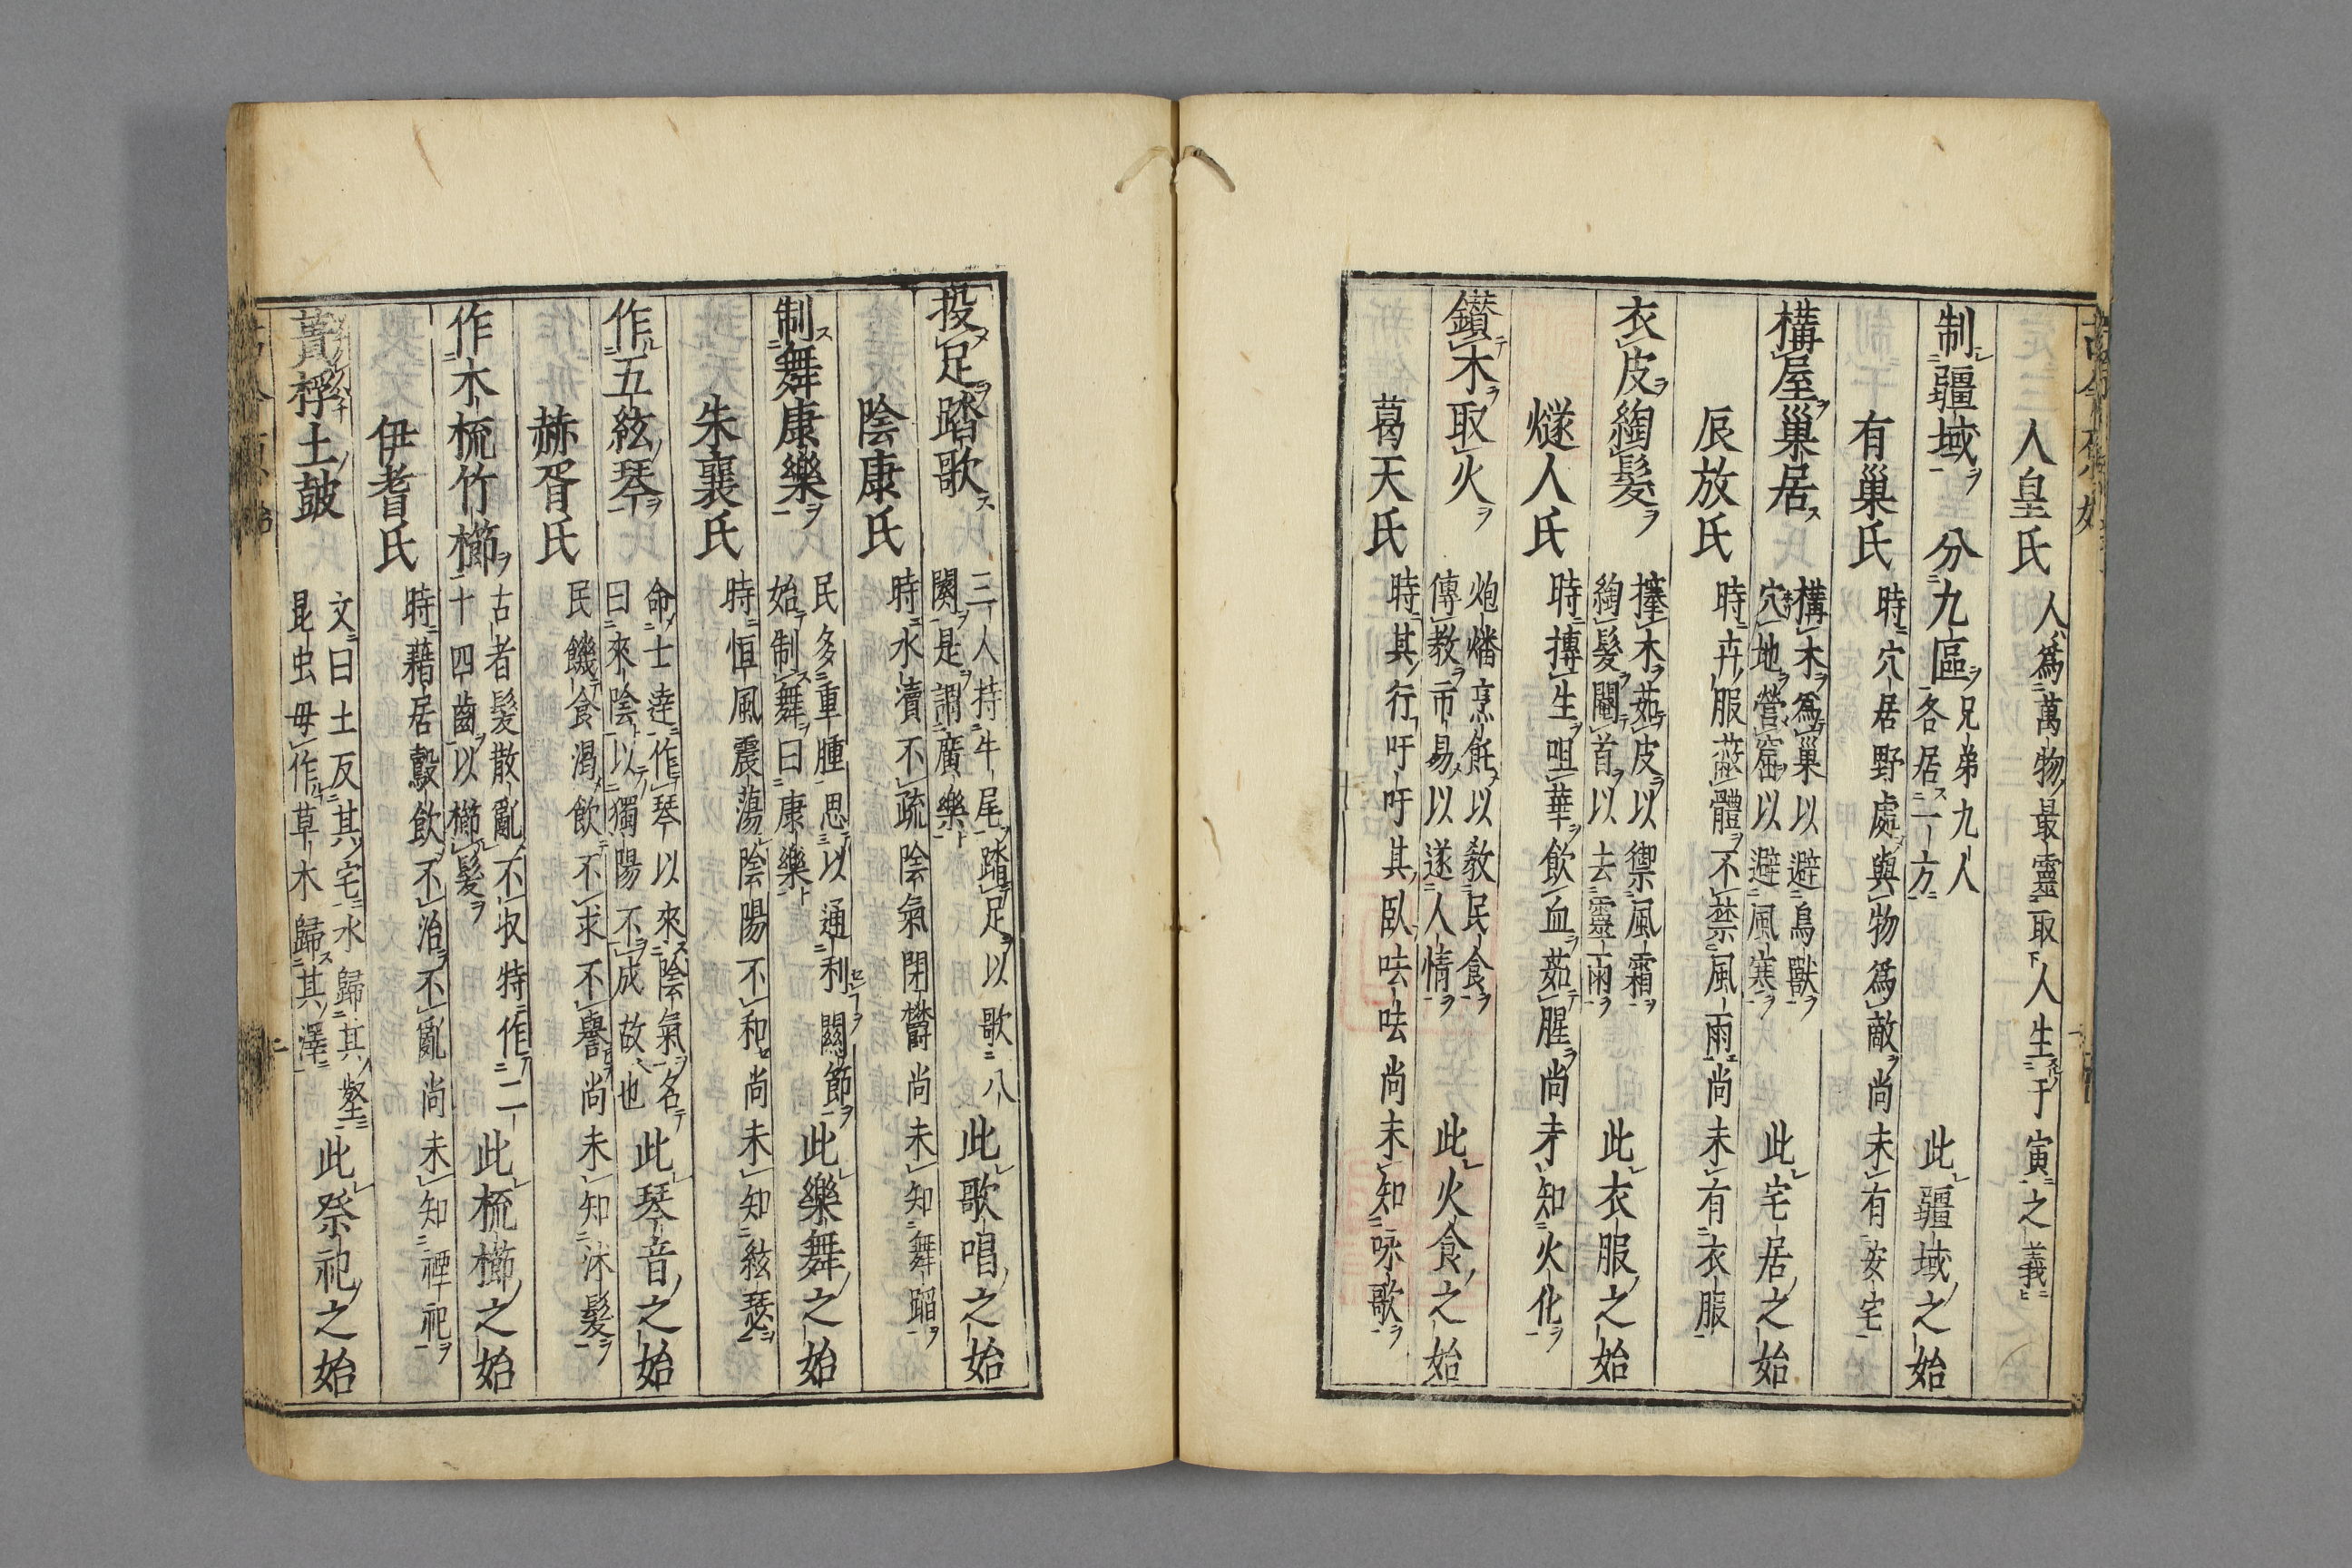 人皇氏 人爲萬物最靈取人生于寅之義
制疆域 分九區 兄弟九人各居一方 此疆域之始
有巢氏 時穴居野處與物爲敵尚未有安宅
構屋巢居 構木爲巢以避鳥獸穴地營窟以避風寒 此宅居之始
辰放氏 時卉服蔽體不禁風雨尚未有衣服
衣皮綯髮 攓木茹皮以禦風霜綯髮閹首以去靈雨 此衣服之始
燧人氏 時摶生咀華飲血茹腥尚未知火化
鑚木取火 炮燔烹飪以敎民食傳教市易以遂人情 此火食之始
葛天氏 時其行吁吁其臥呿呿尚未知咏歌
投足踏歌 三人持牛尾踏足以歌八闋是謂廣樂 此歌唱之始
陰康氏 時水瀆不疏陰氣閉欝尚未知舞蹈
制舞康樂 民多重腫思以通利關節始制舞曰康樂 此樂舞之始
朱襄氏 時恒風震蕩陰陽不和尚未知絃瑟
作五絃琴 命士逹作琴以來陰氣名曰來陰以獨陽不成故也 此琴音之始
赫胥氏 民饑食渴飲不求不譽尚未知沐髮
作木梳竹櫛 古者髮散亂不收特作二十四齒以櫛髮 此梳櫛之始
伊耆氏 時藉居鷇飲不治不亂尚未知禋祀
蕢桴土鼓 文曰土反其宅水歸其壑昆虫毋作草木歸其澤 此祭祀之始